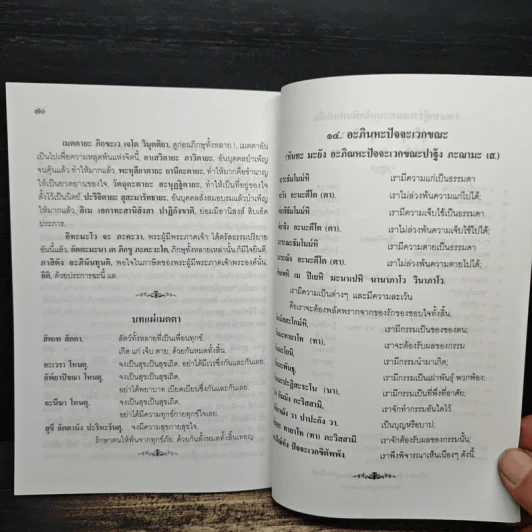 ๗๐
เมตตายะ ภิกขะเว เจโต วิมุตติยา, ดูก่อนภิกษุทั้งหลาย !, เมตตาอัน
เป็นไปเพื่อความหลุดพ้นแห่งจิตนี้, อาเสวิตายะ ภาวิตายะ, อันบุคคลบำเพ็ญ
จนคุ้นแล้ว ทำให้มากแล้ว, พะหุลีกะตายะ ยานีกะตายะ, ทำให้มากคือชำนาญ
ให้เป็นยวดยานของใจ, วัตถุกะตายะ อะนุฏฐิตายะ, ทำให้เป็นที่อยู่ของใจ
ตั้งไว้เป็นนิตย์, ปะริจิตายะ สุสะมารัทธายะ, อันบุคคลสั่งสมอบรมแล้วบำเพ็ญ
ให้มากแล้ว, อิเม เอกาทะสานิสังสา ปาฏิกังขาติ, ย่อมมีอานิสงส์ สิบเอ็ด
ประการ.
อิทะมะโว จะ ภะคะวา, พระผู้มีพระภาคเจ้า ได้ตรัสธรรมปริยาย
อันนี้แล้ว, อัตตะมะนา เต ภิกขู ภะคะวะโต, ภิกษุทั้งหลายเหล่านั้น ก็มีใจยินดี,
ภาสิตัง อะภินันทุนติ, พอใจในภาษิตของพระผู้มีพระภาคเจ้าพระองค์นั้น,
อิติ, ด้วยประการฉะนี้ แล.
บทแผ่เมตตา
สัพเพ สัตตา, สัตว์ทั้งหลายที่เป็นเพื่อนทุกข์
เกิด แก่ เจ็บ ตาย, ด้วยกันหมดทั้งสิ้น.
อะเวรา โหนตุ, จงเป็นสุขเป็นสุขเถิด, อย่าได้มีเวรซึ่งกันและกันเลย.
อัพ๎ยาปัชฌา โหนตุ, จงเป็นสุขเป็นสุขเถิด,
อย่าได้พยาบาท เบียดเบียนซึ่งกันและกันเลย.
อะนีฆา โหนตุ, จงเป็นสุขเป็นสุขเถิด,
อย่าได้มีความทุกข์กายทุกข์ใจเลย.
สุขี อัตตานัง ปะริหะรันตุ, จงมีความสุขกายสุขใจ,
รักษาตนให้พ้นจากทุกข์ภัย, ด้วยกันทั้งหมดทั้งสิ้นเทอญ.
๑๔. อะภิณหะปัจจะเวกขณะ
(หันทะ มะยัง อะภิณหะปัจจะเวกขะณะปาฐัง ภะณามะ เส.)
เรามีความแก่เป็นธรรมดา
อะนะตีโต (ตา) เราไม่ล่วงพ้นความแก่ไปได้;
เรามีความเจ็บไข้เป็นธรรมดา
อะนะตีโต (ตา) เราไม่ล่วงพ้นความเจ็บไข้ไปได้;
เรามีความตายเป็นธรรมดา
อะนะตีโต (ตา) เราไม่ล่วงพ้นความตายไปได้;
เม ปิเยหิ มะนาเปหิ นานาภาโว วินาภาโว.
เรามีความเป็นต่างๆ และมีความละเว้น
คือเราจะต้องพลัดพรากจากของรักของชอบใจทั้งสิ้น.
เรามีกรรมเป็นของของตน;
(ทา) เราจะต้องรับผลของกรรม
เรามีกรรมนำมาเกิด;
เรามีกรรมเป็นเผ่าพันธุ์ พวกพ้อง;
(นา). เรามีกรรมเป็นที่พึ่งที่อาศัย;
เราจักทำกรรมอันใดไว้
วา ปาปะกัง วา, เป็นบุญหรือบาป;
(ทา) ภะวิสสามิ. เราจักต้องรับผลของกรรมนั้น;
เราพึงพิจารณาเห็นเนืองๆ ดังนี้.